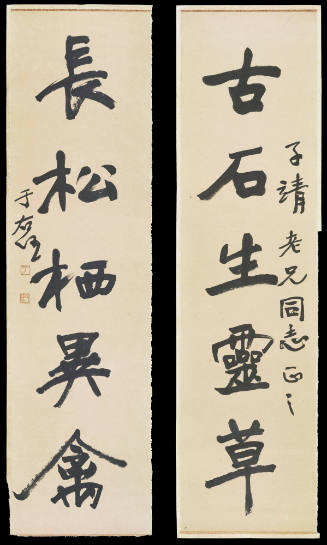 子靖老兄同志正之
古石生靈草
長松栖異禽
于右任